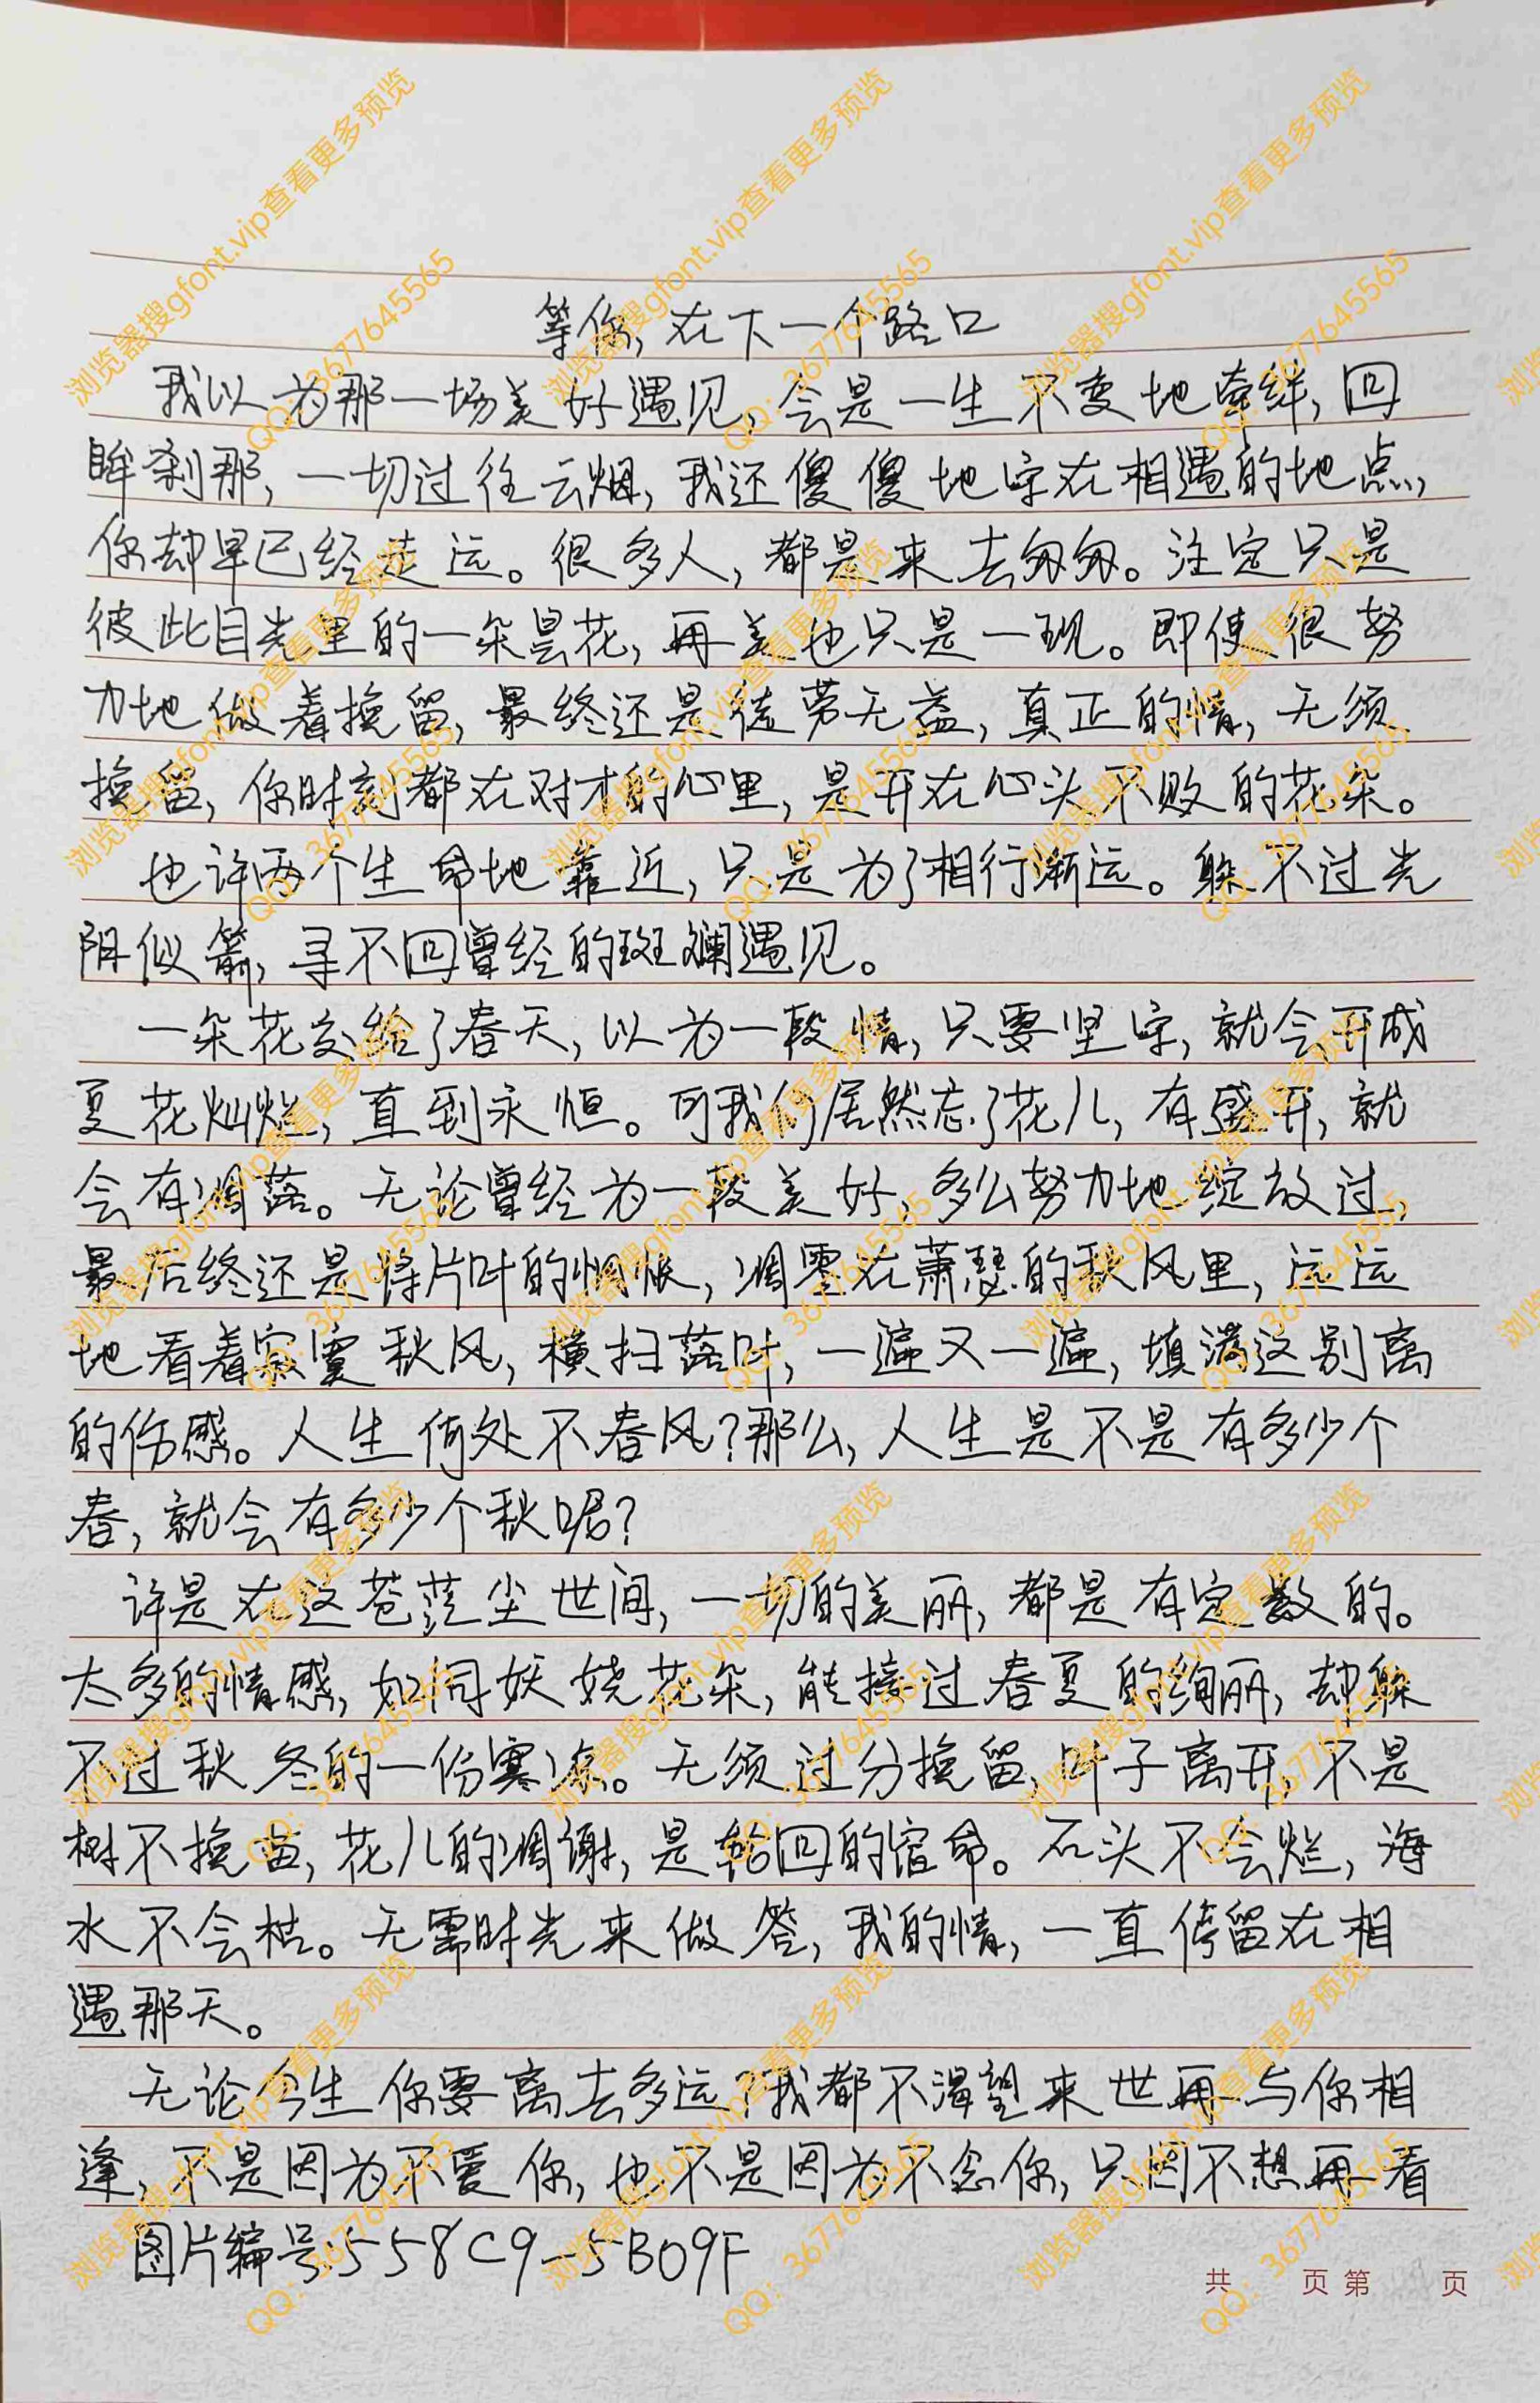 等你,在下一个路口
我以为那一场美好遇见,会是一生不变地牵绊,回
眸刹那,一切过往云烟,我还傻傻地守在相遇的地点,
你却早已经走远。很多人,都是来去匆匆。注定只是
彼此目光里的一朵昙花,再美也只是一现。即使很努
力地做着挽留,最终还是徒劳无益,真正的情,无须
挽留,你时刻都在对方的心里,是开在心头不败的花朵。
也许两个生命地靠近,只是为了相行渐远。躲不过光
阴似箭,寻不回曾经的斑斓遇见。
一朵花交给了春天,以为一段情,只要坚守,就会开成
夏花灿烂,直到永恒。可我们居然忘了花儿,有盛开,就
会有凋落。无论曾经为一段美好,多么努力地绽放过,
最后终还是将片叶的惆怅,凋零在萧瑟的秋风里,远远
地看着寂寞秋风,横扫落叶,一遍又一遍,填满这别离
的伤感。人生何处不春风?那么,人生是不是有多少个
春,就会有多少个秋呢?
许是在这苍茫尘世间,一切的美丽,都是有定数的。
太多的情感,如同妖娆花朵,能接过春夏的绚丽,却躲
不过秋冬的一份寒凉。无须过分挽留,叶子离开,不是
树不挽留,花儿的凋谢,是轮回的宿命。石头不会烂,海
水不会枯。无需时光来做答,我的情,一直停留在相
遇那天。
无论今生你要离去多远?我都不渴望来世再与你相
逢,不是因为不爱你,也不是因为不念你,只因不想再看
图片编号:558C9-5B09F
共 页 第 页
浏览器搜gfont.vip查看更多预览
QQ：3677645565